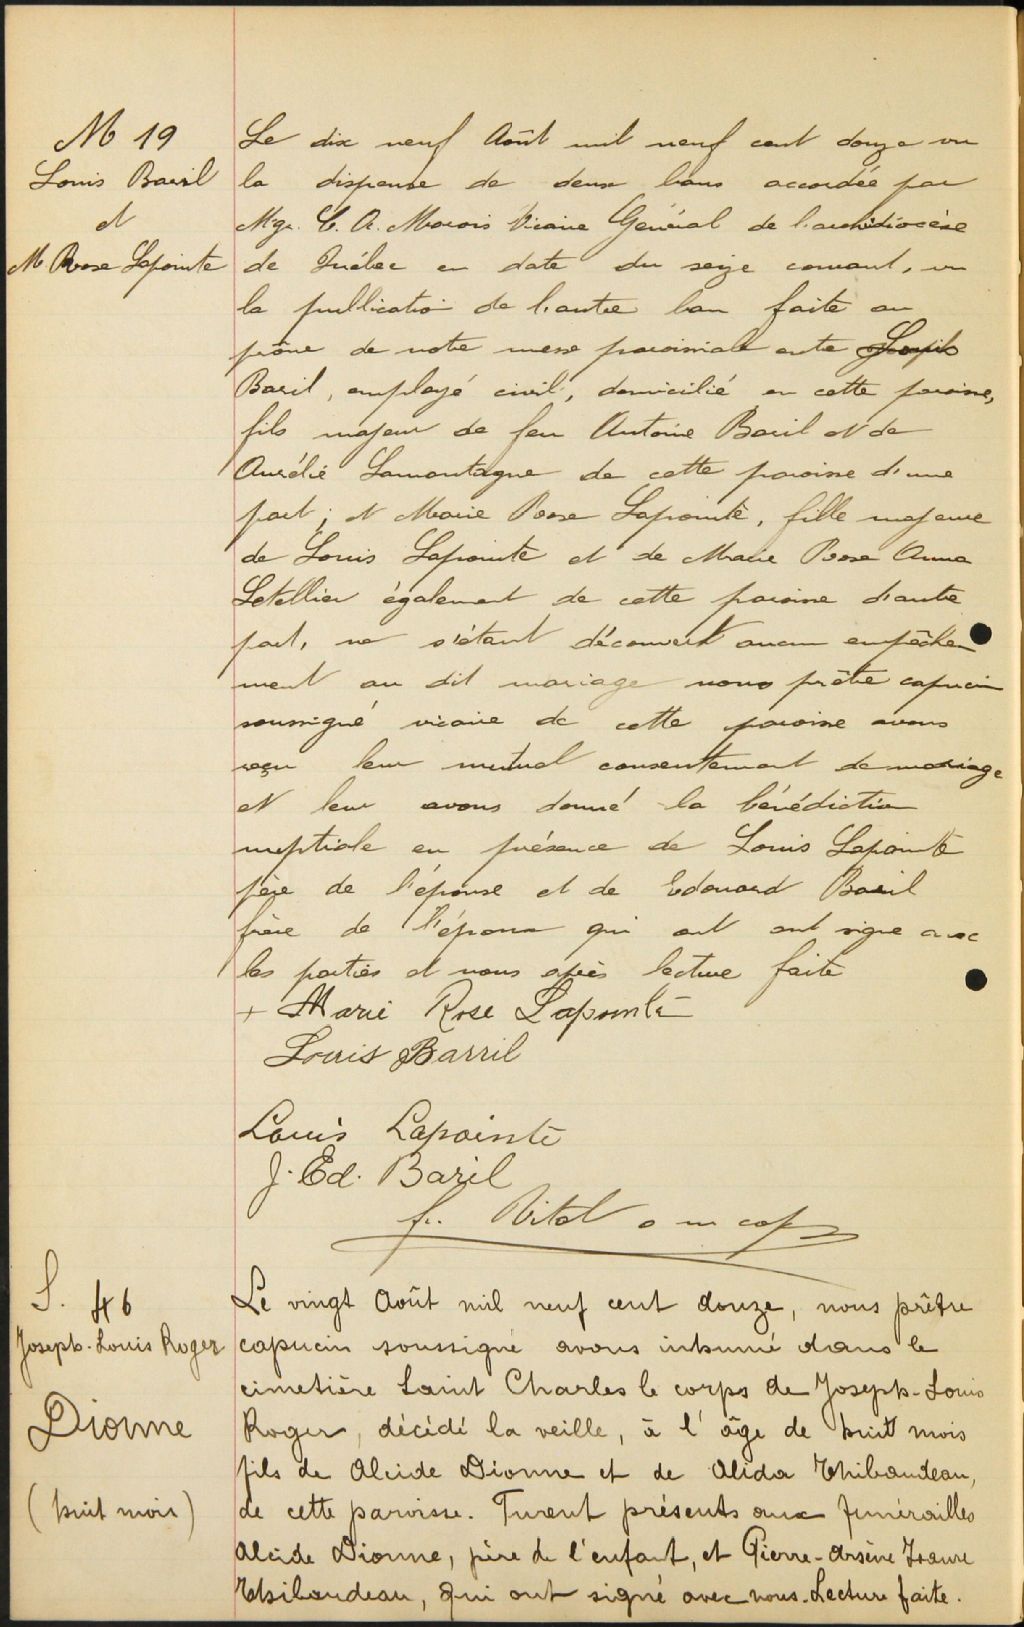 M 19
Louis Baril
et
M Rose Lapointe
Le dix neuf Août mil neuf cent douze vu
la dispense de deux bans accordée par
Mgr. C. A. Marois Vicaire Général de l'archidiocèse
de Québec en date du seize courant, vu
la publication de l'autre ban faite au
prône de notre messe paroissiale entre Louis
Baril, employé civil, domicilié en cette paroisse,
fils majeur de feu Antoine Baril et de
Aurélie Lamontagne de cette paroisse d'une
part; et Marie Rose Lapointe, fille majeure
de Louis Lapointe et de Marie Rose Anna
Letellier également de cette paroisse d'autre
part, ne s'étant découvert aucun empêche
ment au dit mariage nous prêtre capucin
soussigné vicaire de cette paroisse avons
reçu leur mutuel consentement de mariage
et leur avons donné la bénédiction
nuptiale en présence de Louis Lapointe
père de l'épouse et de Edouard Baril
frère de l'époux qui ont ont signé avec
les parties et nous après lecture faite
+ Marie Rose Lapointe
Louis Barril
Louis Lapointe
J. Ed. Baril
fr. Vital o m cap
S. 46
Joseph-Louis Roger
Dionne
(huit mois)
Le vingt Août mil neuf cent douze, nous prêtre
capucin soussigné avons inhumé dans le
cimetière Saint Charles le corps de Joseph-Louis
Roger, décédé la veille, à l'âge de huit mois
fils de Alcide Dionne et de Alida Thibaudeau,
de cette paroisse. Furent présents aux funérailles
Alcide Dionne, père de l'enfant, et Pierre-Arsène
Thibaudeau, qui ont signé avec nous. Lecture faite.